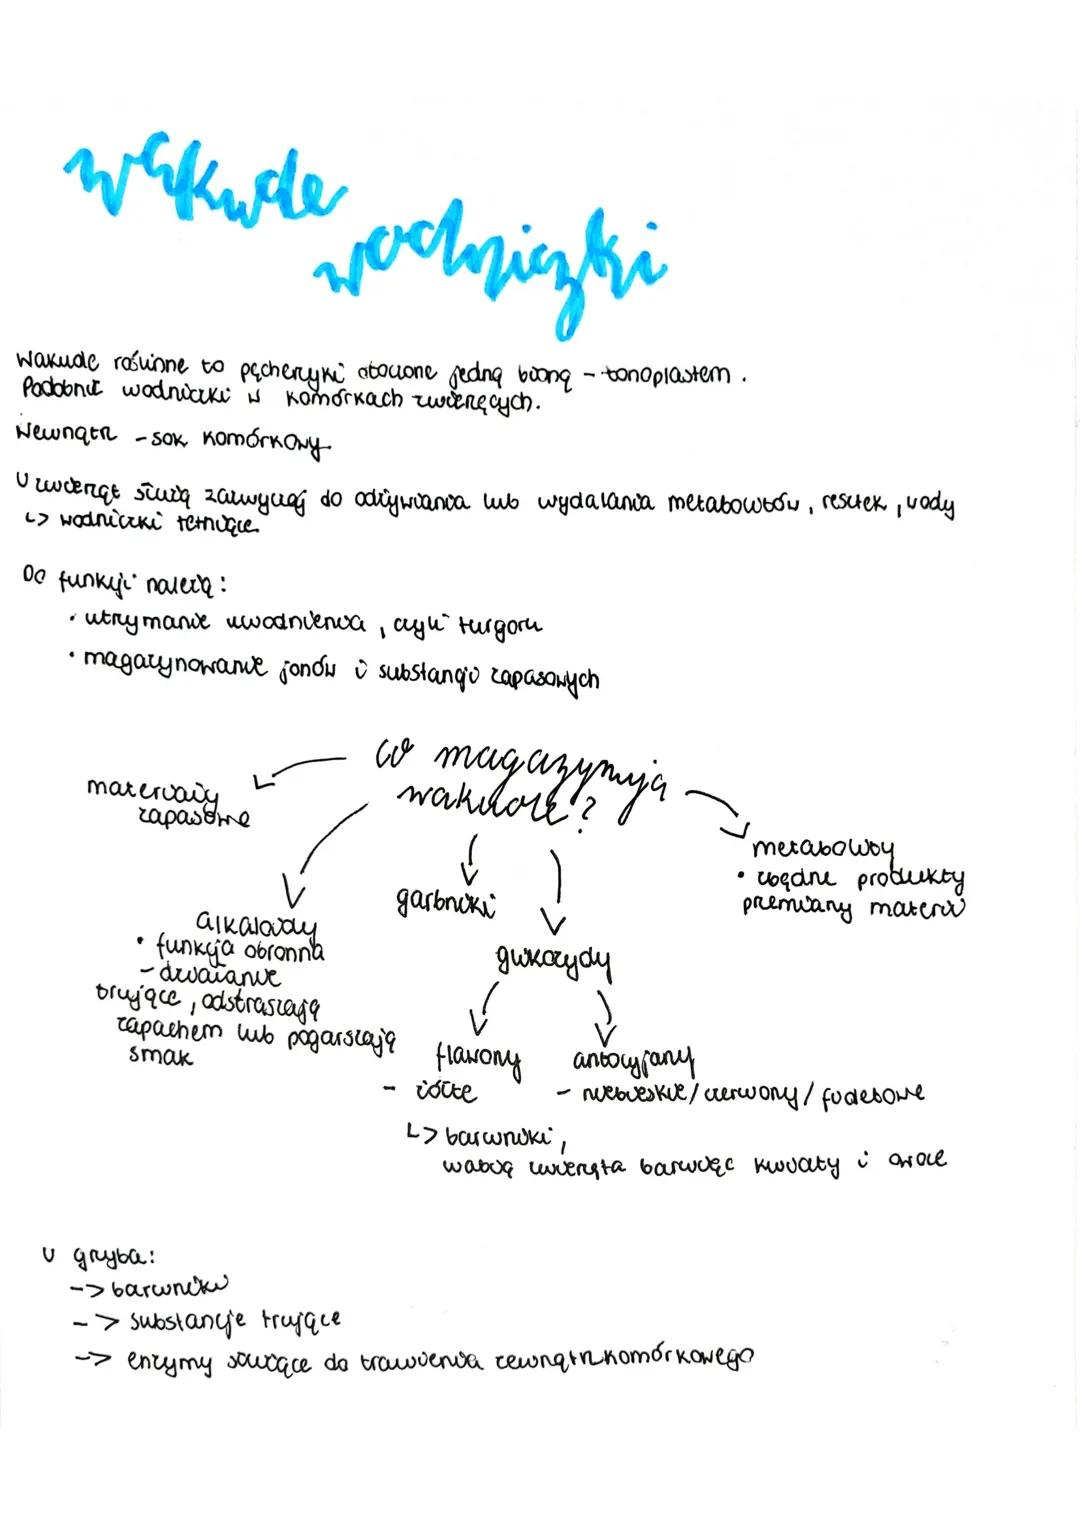 wakuole
wodniczki
Wakuole roślinne to pęcherzyki otoczone jedną błoną - tonoplastem.
Podobnie wodniczki w komórkach zwierzęcych.
Wewnątrz - sok komórkowy
U zwierząt służą zazwyczaj do odżywiania lub wydalania metabolitów, resztek, wody
↳ wodniczki tętniące
Do funkcji należą:
• utrzymanie uwodnienia, czyli turgoru
• magazynowanie jonów i substancji zapasowych
co magazynują
wakuole?
materiały
zapasowe
alkaloidy
• funkcja obronna
- działanie
trujące, odstraszają
zapachem lub pogarszają
smak
garbniki
glikozydy
flawony
- żółte
antocyjany
- niebieskie/czerwony/fioletowe
↳ barwniki,
wabią zwierzęta barwiąc kwiaty i owoce
metabolity
• zbędne produkty
przemiany materii
U grzyba:
-> barwniki
-> substancje trujące
-> enzymy służące do trawienia zewnątrzkomórkowego